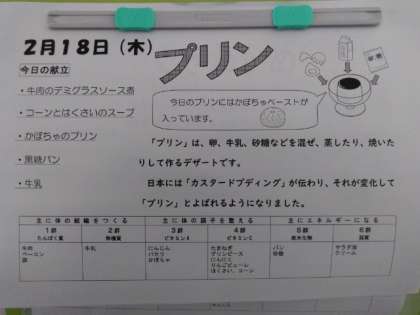 2月18日（木）
プリン
今日の献立
・牛肉のデミグラスソース煮
・コーンとはくさいのスープ
・かぼちゃのプリン
・黒糖パン
・牛乳
今日のプリンにはかぼちゃペーストが
入っています。
「プリン」は、卵、牛乳、砂糖などを混ぜ、蒸したり、焼いた
りして作るデザートです。
日本には「カスタードプディング」が伝わり、それが変化して
「プリン」とよばれるようになりました。
主に体の組織をつくる 主に体の調子を整える 主にエネルギーになる
1群 2群 3群 4群 5群 6群
たんぱく質 無機質 ビタミンA ビタミンC 炭水化物 脂質
牛肉 牛乳 にんじん たまねぎ パン サラダ油
ベーコン パセリ グリンピース 砂糖 クリーム
かぼちゃ にんにく
りんごピューレ
はくさい、コーン